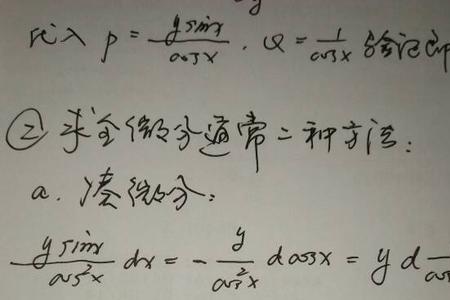 代入 P = \frac{y sinx}{cos x} . Q = \frac{1}{cos x} 验证即
② 求全微分通常二种方法:
a. 凑微分:
\frac{y sinx}{cos²x} dx = - \frac{y}{cos²x} d cosx = y d